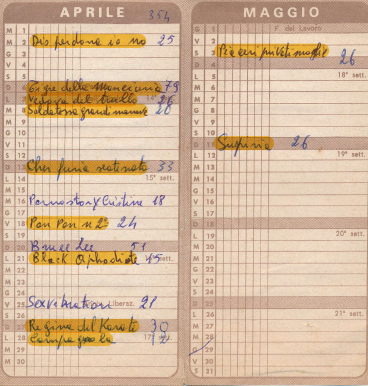 APRILE 354
M 1
M 2 Dio perdona io no 25
G 3
V 4
S 5
D 6 Tigre della Manciuria 79
L 7 Vedova del trullo 26
M 8 Soldatessa grandi manovre 20
M 9
G 10
V 11
S 12
D 13 Che furia scatenata 33
L 14 15° sett.
M 15
M 16 Pornostory Cristine 18
G 17
V 18 Pon Pon n 2° 24
S 19
D 20 Bruce Lee 51
L 21 Black Aphrodite 45 sett.
M 22
M 23
G 24
V 25 Sexvibration Liberaz. 21
S 26
D 27 Regina del Karate 30
L 28 Compagno
M 29
M 30
MAGGIO
G 1 F. del Lavoro
V 2
S 3 Piaceri privati moglie 26
D 4
L 5 18° sett.
M 6
M 7
G 8
V 9
S 10
D 11 Supina 26
L 12 19° sett.
M 13
M 14
G 15
V 16
S 17
D 18
L 19 20° sett.
M 20
M 21
G 22
V 23
S 24
D 25
L 26 21° sett.
M 27
M 28
G 29
V 30
S 31